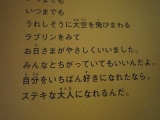 いつまでも
いつまでも
うれしそうに大空を飛びまわる
ラプリンをみて
お日さまがやさしくいいました。
みんなとちがっていてもいいんだよ。
自分をいちばん好きになれたなら、
ステキな大人になれるんだ。